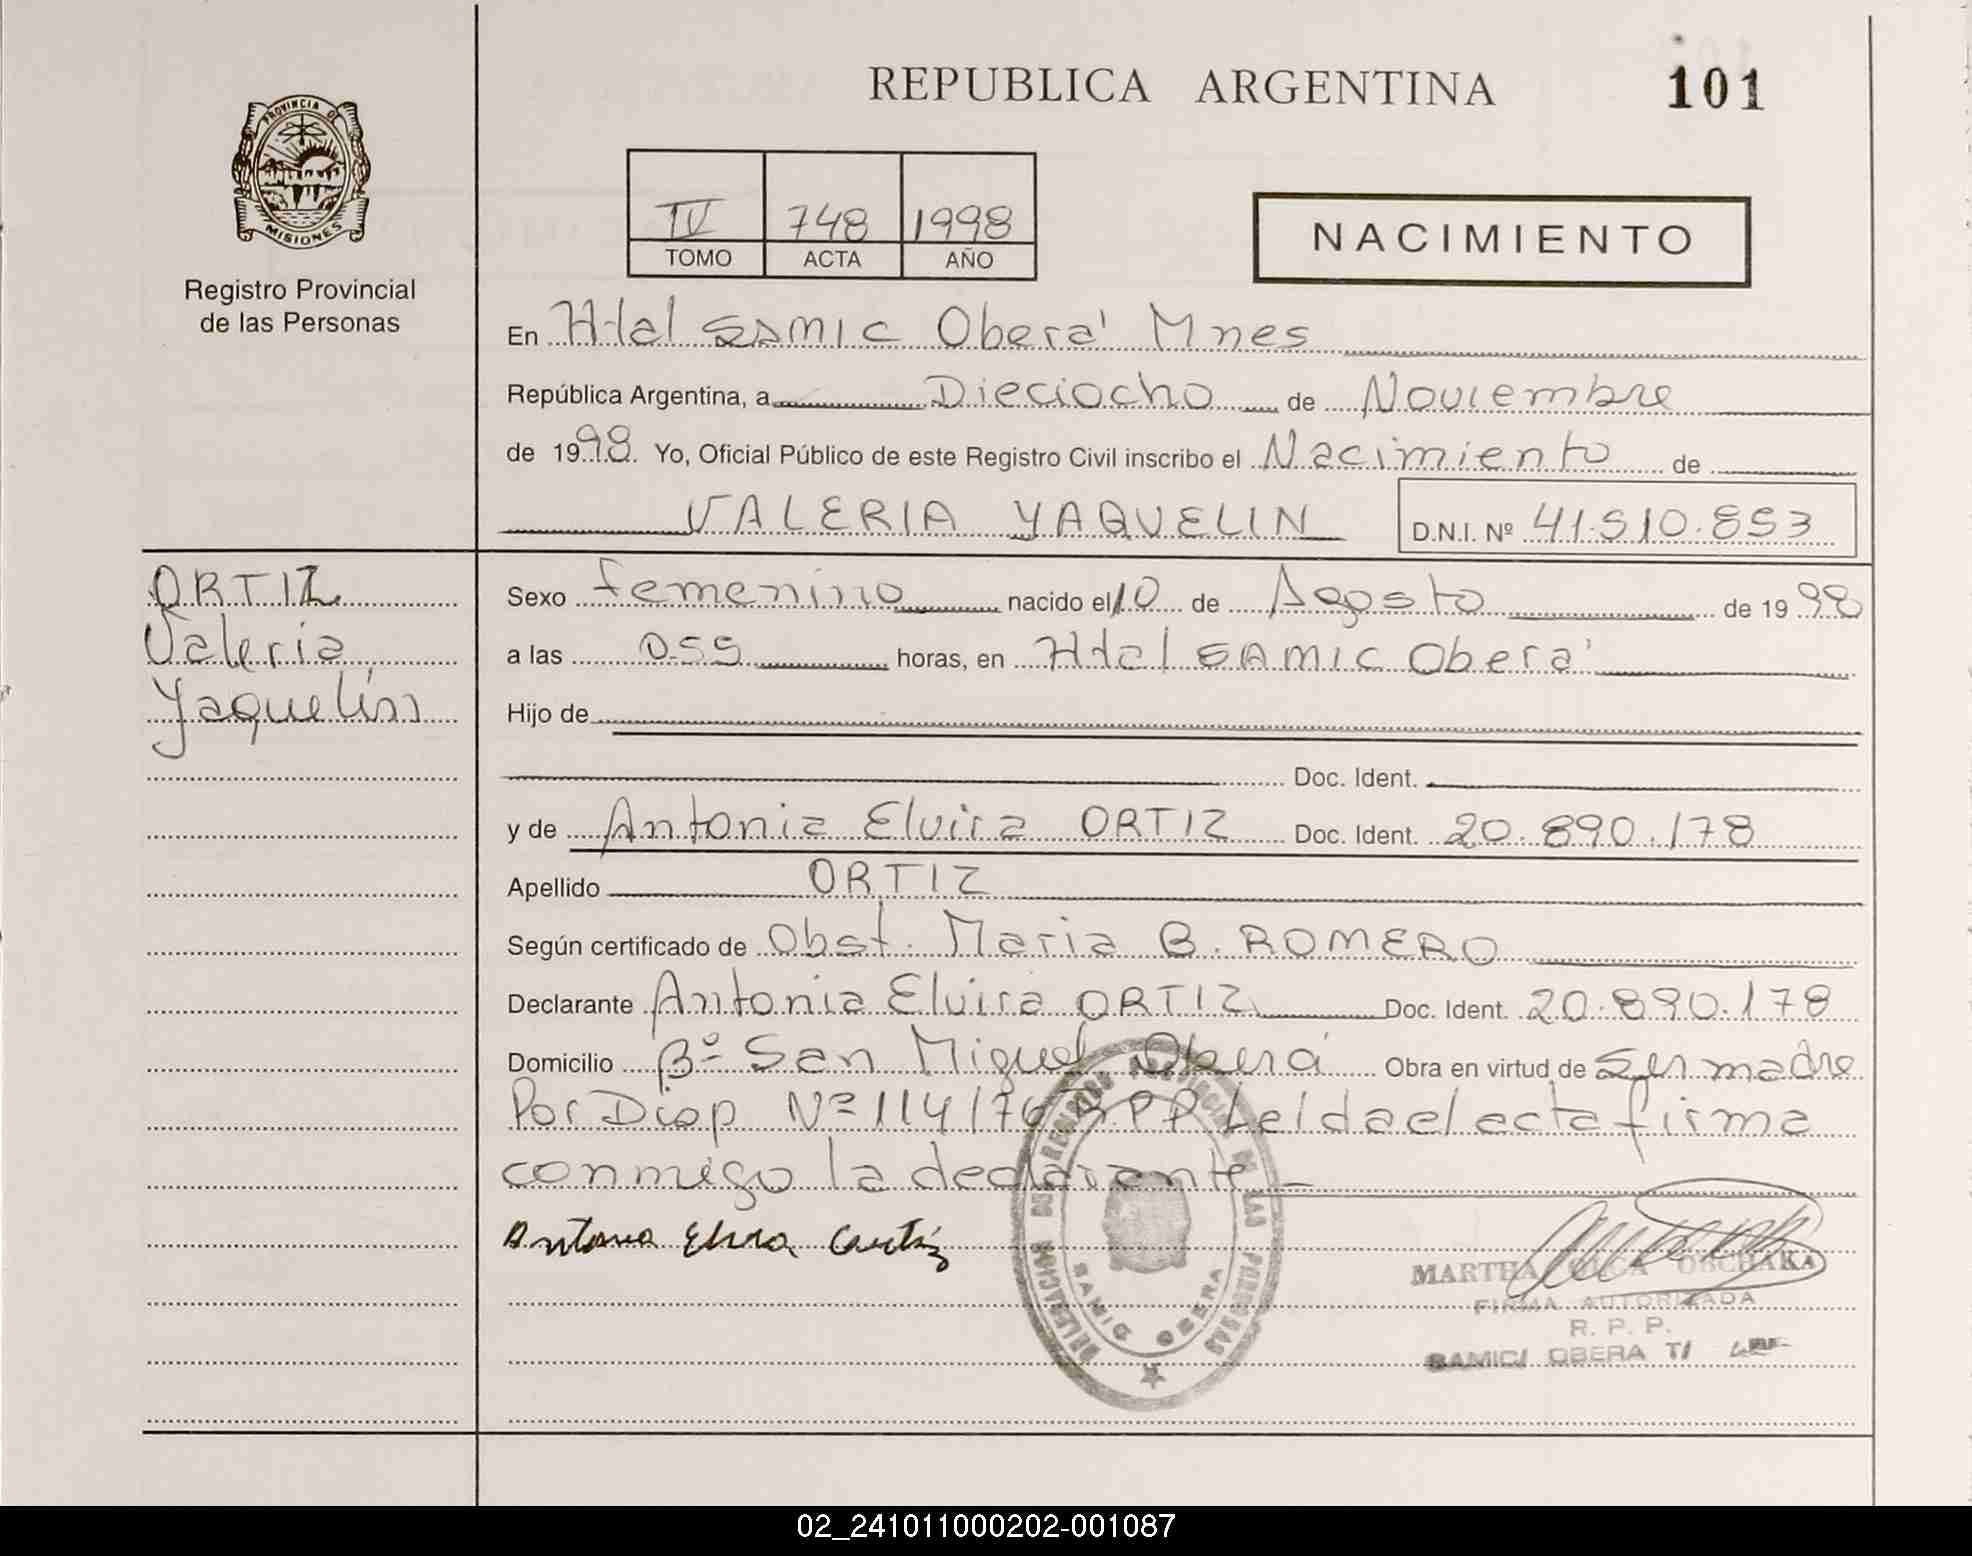 REPUBLICA ARGENTINA
101
PROVINCIA DE
MISIONES
Registro Provincial
de las Personas
IV 748 1998
TOMO ACTA AÑO
NACIMIENTO
En Htal SAMIC Oberá Mnes
República Argentina, a Dieciocho de Noviembre
de 1998. Yo, Oficial Público de este Registro Civil inscribo el Nacimiento de
VALERIA YAQUELIN D.N.I. Nº 41.510.853
ORTIZ
Valeria
Yaquelin
Sexo femenino nacido el 10 de Agosto de 1998
a las 0.55 horas, en Htal SAMIC Oberá
Hijo de
Doc. Ident.
y de Antonia Elvira ORTIZ Doc. Ident. 20.890.178
Apellido ORTIZ
Según certificado de Obst. Maria B. ROMERO
Declarante Antonia Elvira ORTIZ Doc. Ident. 20.890.178
Domicilio Bº San Miguel Oberá Obra en virtud de ser madre
Por Disp Nº 114/76 R.P.P Leida el acta firma
conmigo la declarante
Antonia Elvira Ortiz
DELEGACION DEL REGISTRO PROVINCIAL DE LAS PERSONAS
SAMIC OBERA
MARTHA OBCHAKA
FIRMA AUTORIZADA
R. P. P.
SAMIC/ OBERA T/
02_241011000202-001087